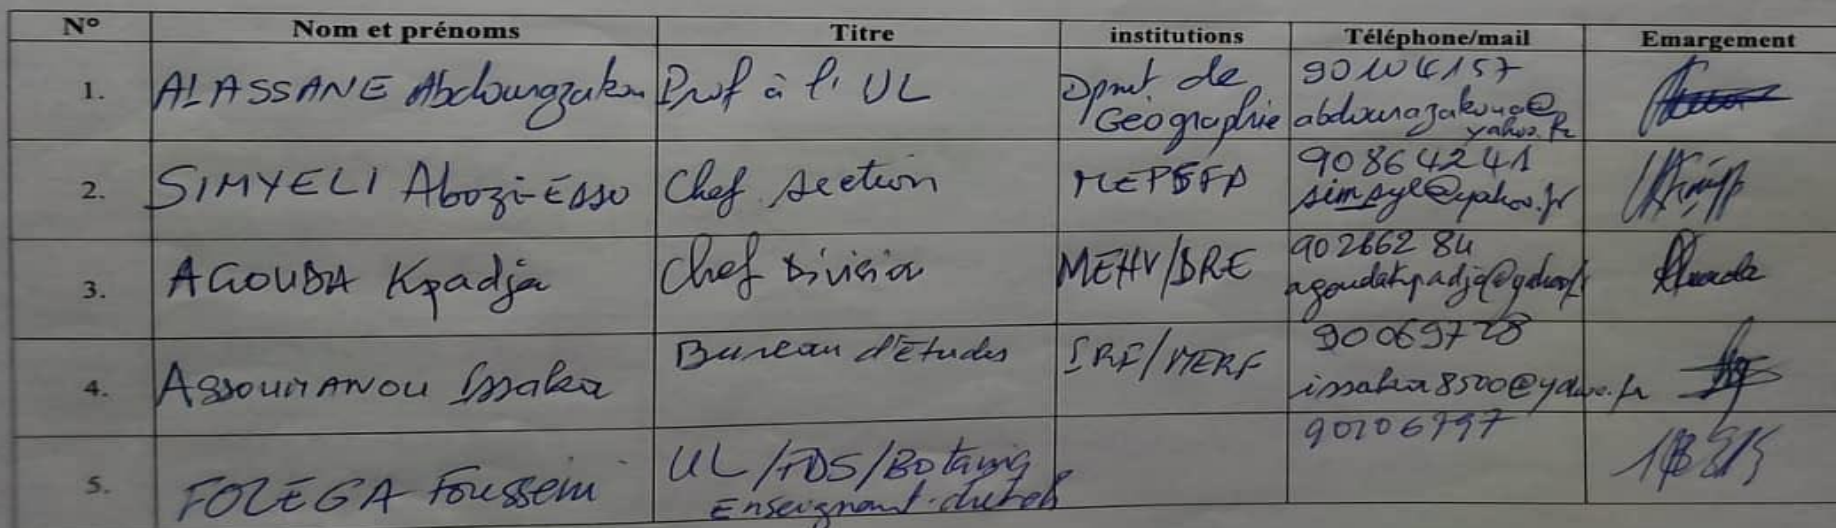 N° Nom et prénoms Titre institutions Téléphone/mail Emargement
1. ALASSANE Abdourazakou Prof à l'UL Dpmt de Géographie 90104157 abdourazakoua@yahoo.fr
2. SIMYELI Abozi-Esso Chef section 90864241 simsyl@yahoo.fr
3. AGOUDA Kpadja Chef Division MEHV/DRE 90266284 agoudakpadja@yahoo.fr
4. ASSOUMANOU Issaka Bureau d'Etudes 90069728 issaka8500@yahoo.fr
5. FOLEGA Fousseni UL/FDS/Botaniq Enseignant-cherch 90106797